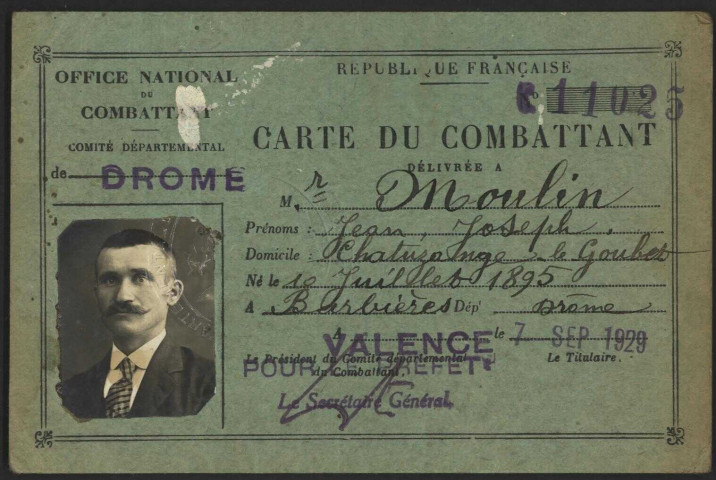 OFFICE NATIONAL
DU
COMBATTANT
COMITÉ DÉPARTEMENTAL
de DROME
REPUBLIQUE FRANÇAISE
11025
CARTE DU COMBATTANT
DÉLIVRÉE A
M. r Moulin
Prénoms : Jean, Joseph,
Domicile : Chatuzange le Goubet
Né le 10 Juillet 1895
A Barbières Dép' Drôme
A VALENCE le 7 SEP 1929
Le Président du Comité départemental
du Combattant,
Le Titulaire.
POUR LE PREFET
Le Secrétaire Général,